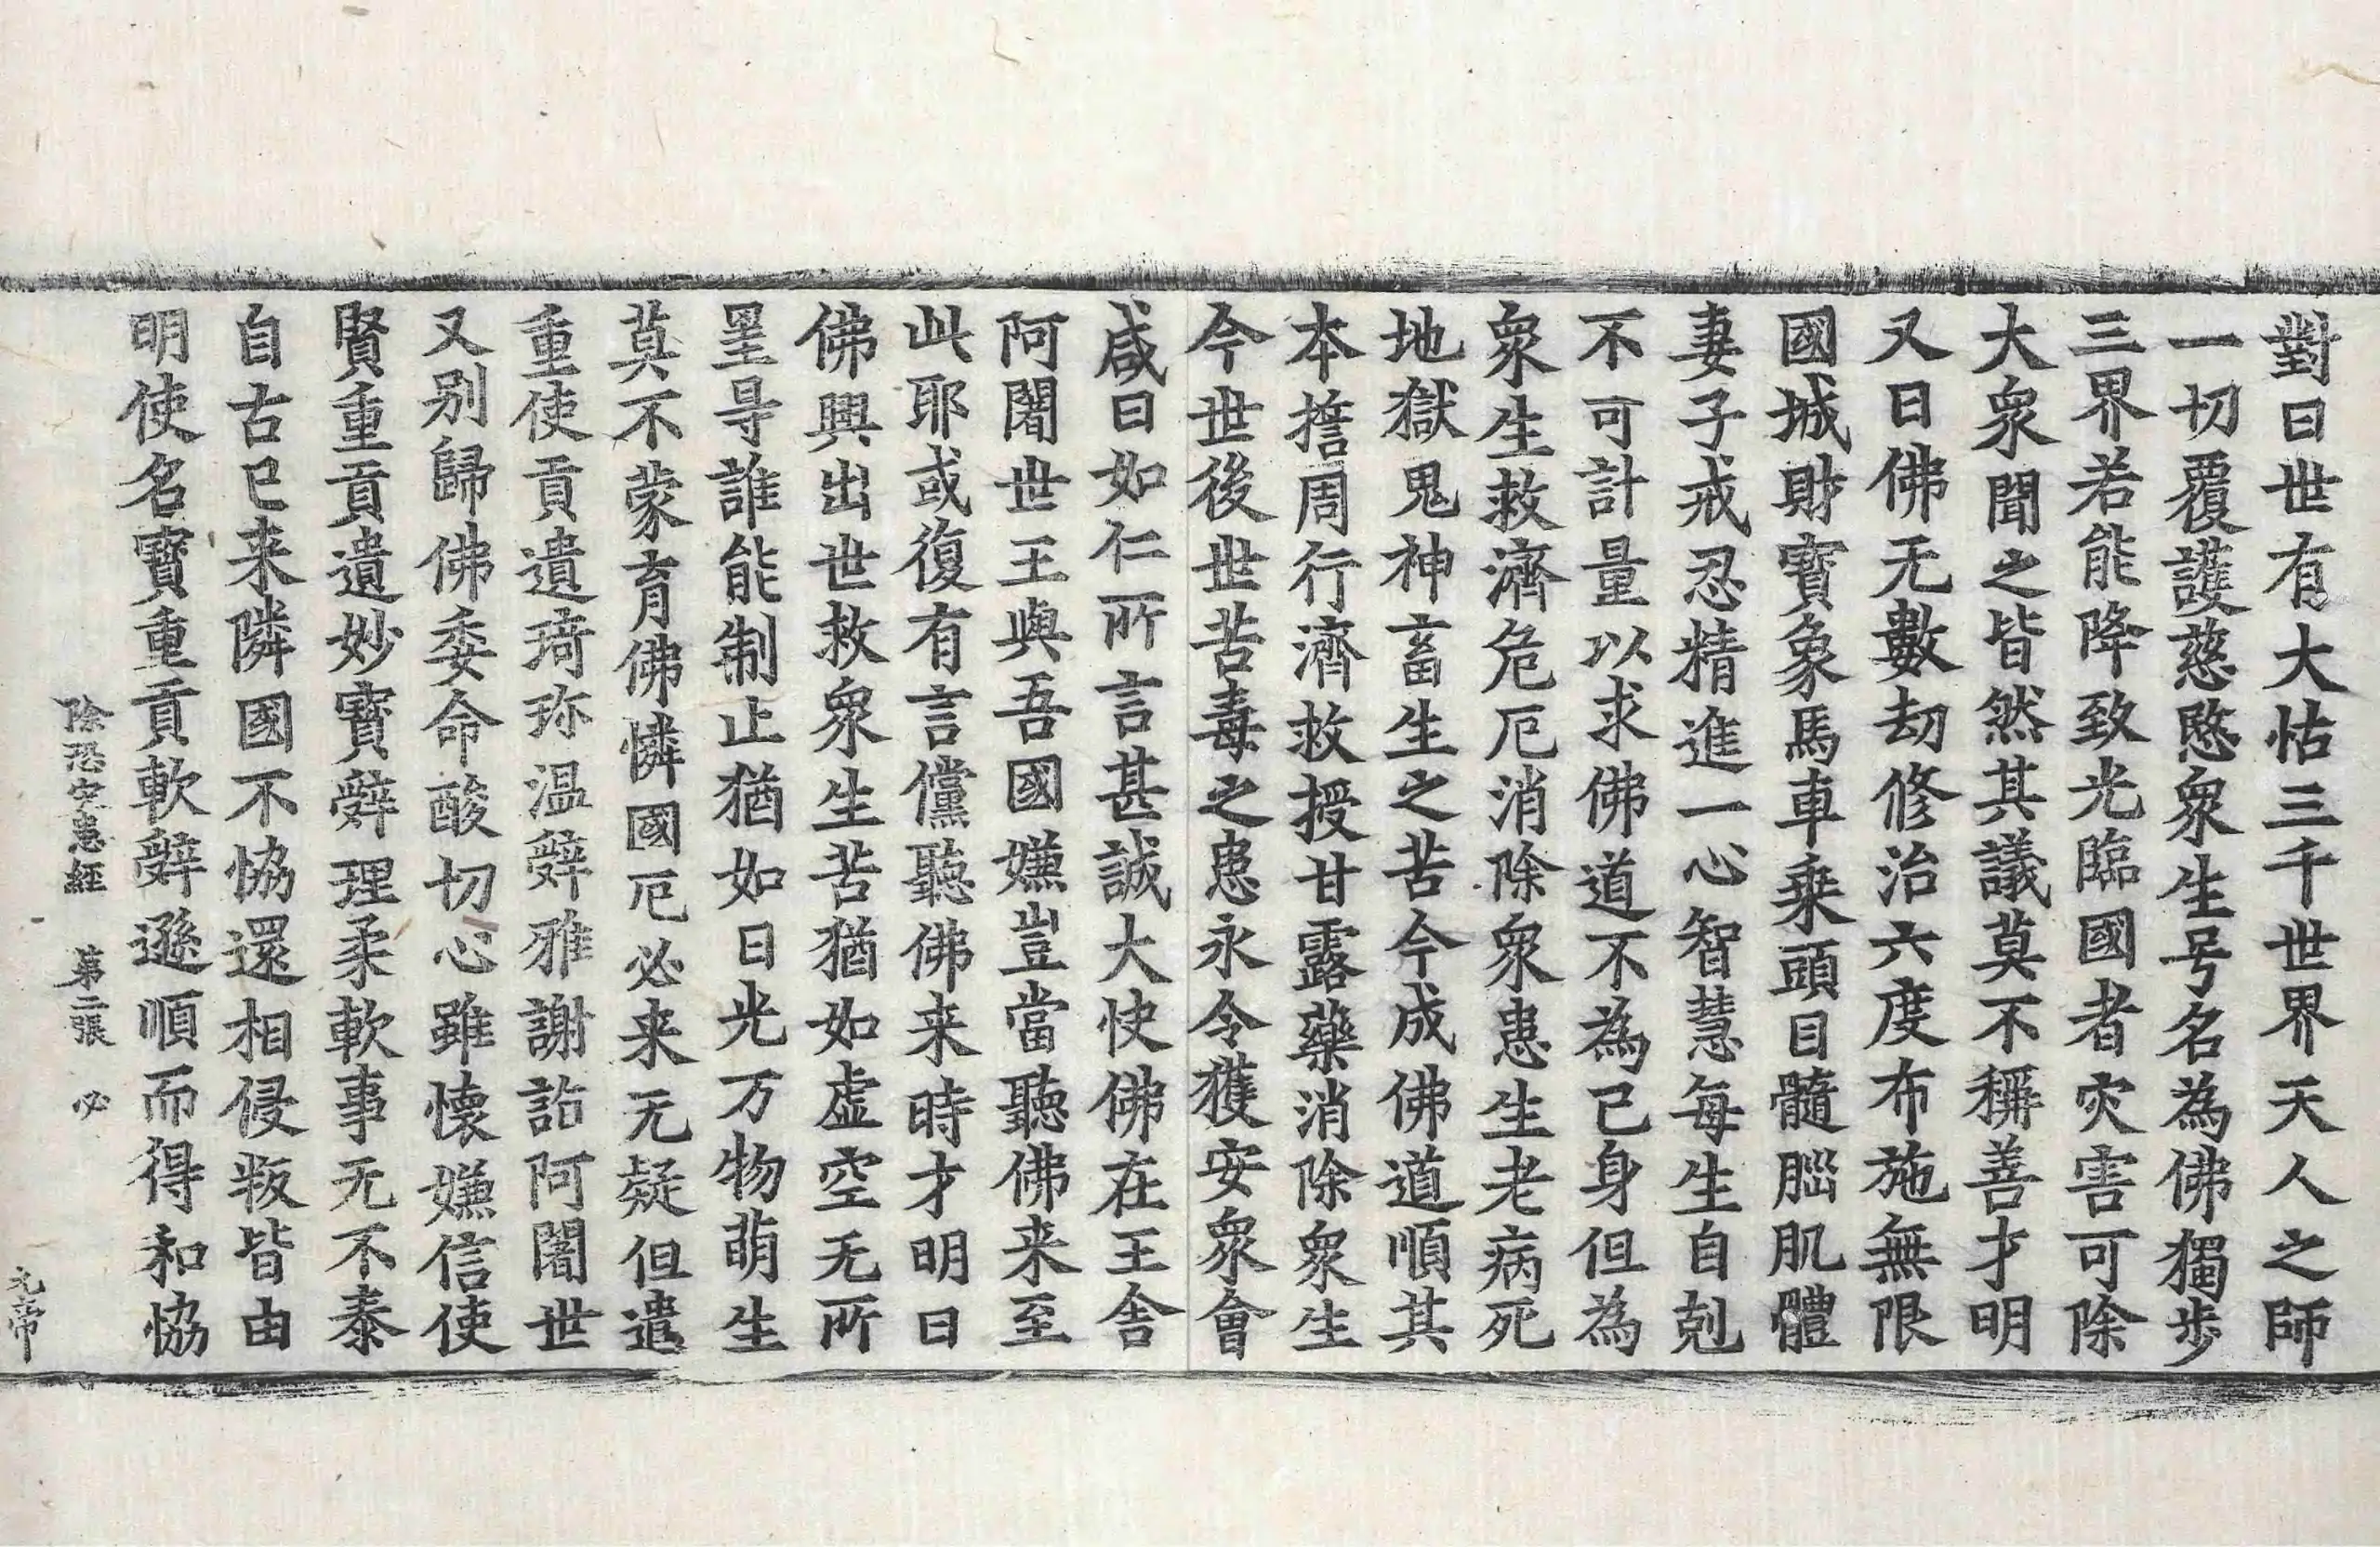 對曰世有大怙三千世界天人之師
一切覆護慈愍衆生号名為佛獨步
三界若能降致光臨國者灾害可除
大衆聞之皆然其議莫不稱善才明
又曰佛无數劫修治六度布施無限
國城財寳象馬車乗頭目髓腦肌體
妻子戒忍精進一心智慧每生自剋
不可計量以求佛道不為已身但為
衆生救濟危厄消除衆患生老病死
地獄鬼神畜生之苦今成佛道順其
本擔周行濟救授甘露藥消除衆生
今世後世苦毒之患永令獲安衆會
咸曰如仁所言甚誠大快佛在王舍
阿闍世王與吾國嫌豈當聽佛来至
此耶或復有言儻聽佛来時才明曰
佛興出世救衆生苦猶如虚空无所
罣㝵誰能制止猶如日光万物萌生
莫不蒙育佛憐國厄必来无疑但遣
重使貢遺琦珎温辤雅謝詣阿闍世
又别歸佛委命酸切心雖懷嫌信使
賢重貢遺妙寳辤理柔軟事无不泰
自古已来隣國不恊還相侵叛皆由
明使名寳重貢軟辤遜順而得和恊
除恐灾患經 第二張 必
元帝